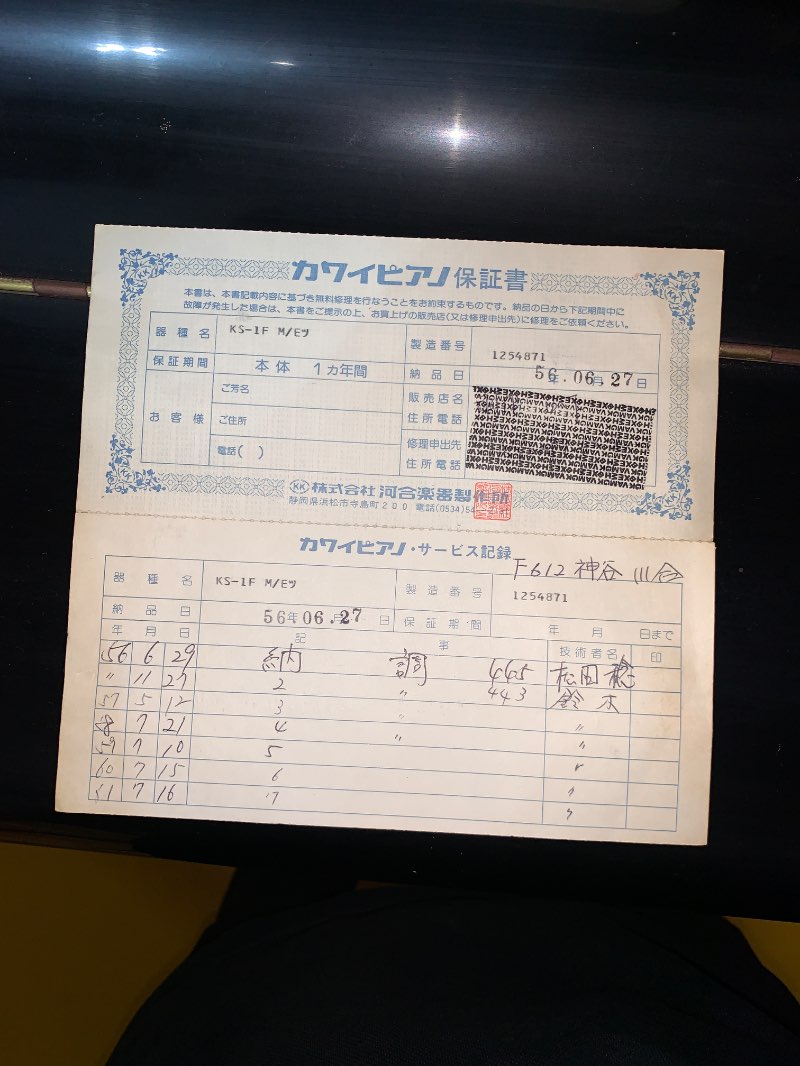 カワイピアノ 保証書
本書は、本書記載内容に基づき無料修理を行なうことをお約束するものです。納品の日から下記期間中に
故障が発生した場合は、本書をご提示の上、お買上げの販売店(又は修理申出先)に修理をご依頼ください。
器種名 KS-1F M/Eツ 製造番号 1254871
保証期間 本体 1カ年間 納品日 56年06月27日
お客様 ご芳名 販売店名
ご住所 住所電話
電話( ) 修理申出先
住所電話
KK 株式会社 河合楽器製作所
静岡県浜松市寺島町200 電話(0534)54
カワイピアノ・サービス記録
F612 神谷 川合
器種名 KS-1F M/Eツ 製造番号 1254871
納品日 56年06月27日 保証期間 年 月 日まで
年 月 日 記事 技術者名 印
56 6 29 納 調 445 松田
〃 11 27 2 〃 443 鈴木
57 5 12 3 〃 〃
58 7 21 4 〃 〃
59 7 10 5 〃
60 7 15 6 〃
61 7 16 7 〃